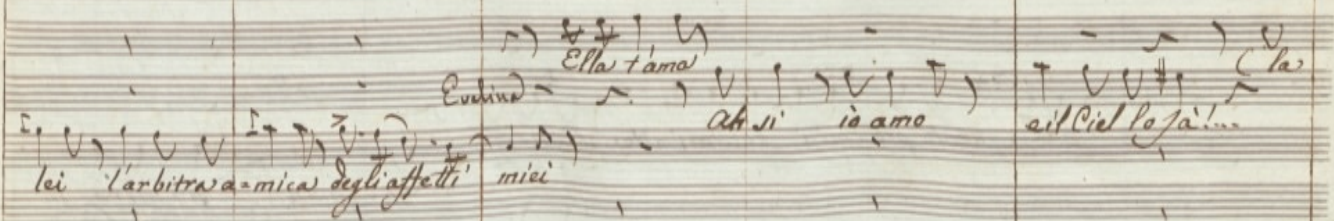 Ella t'ama
Evelina
(la
Ah si io amo e il Ciel lo sà!...
lei l'arbitra a=mica degli affetti miei